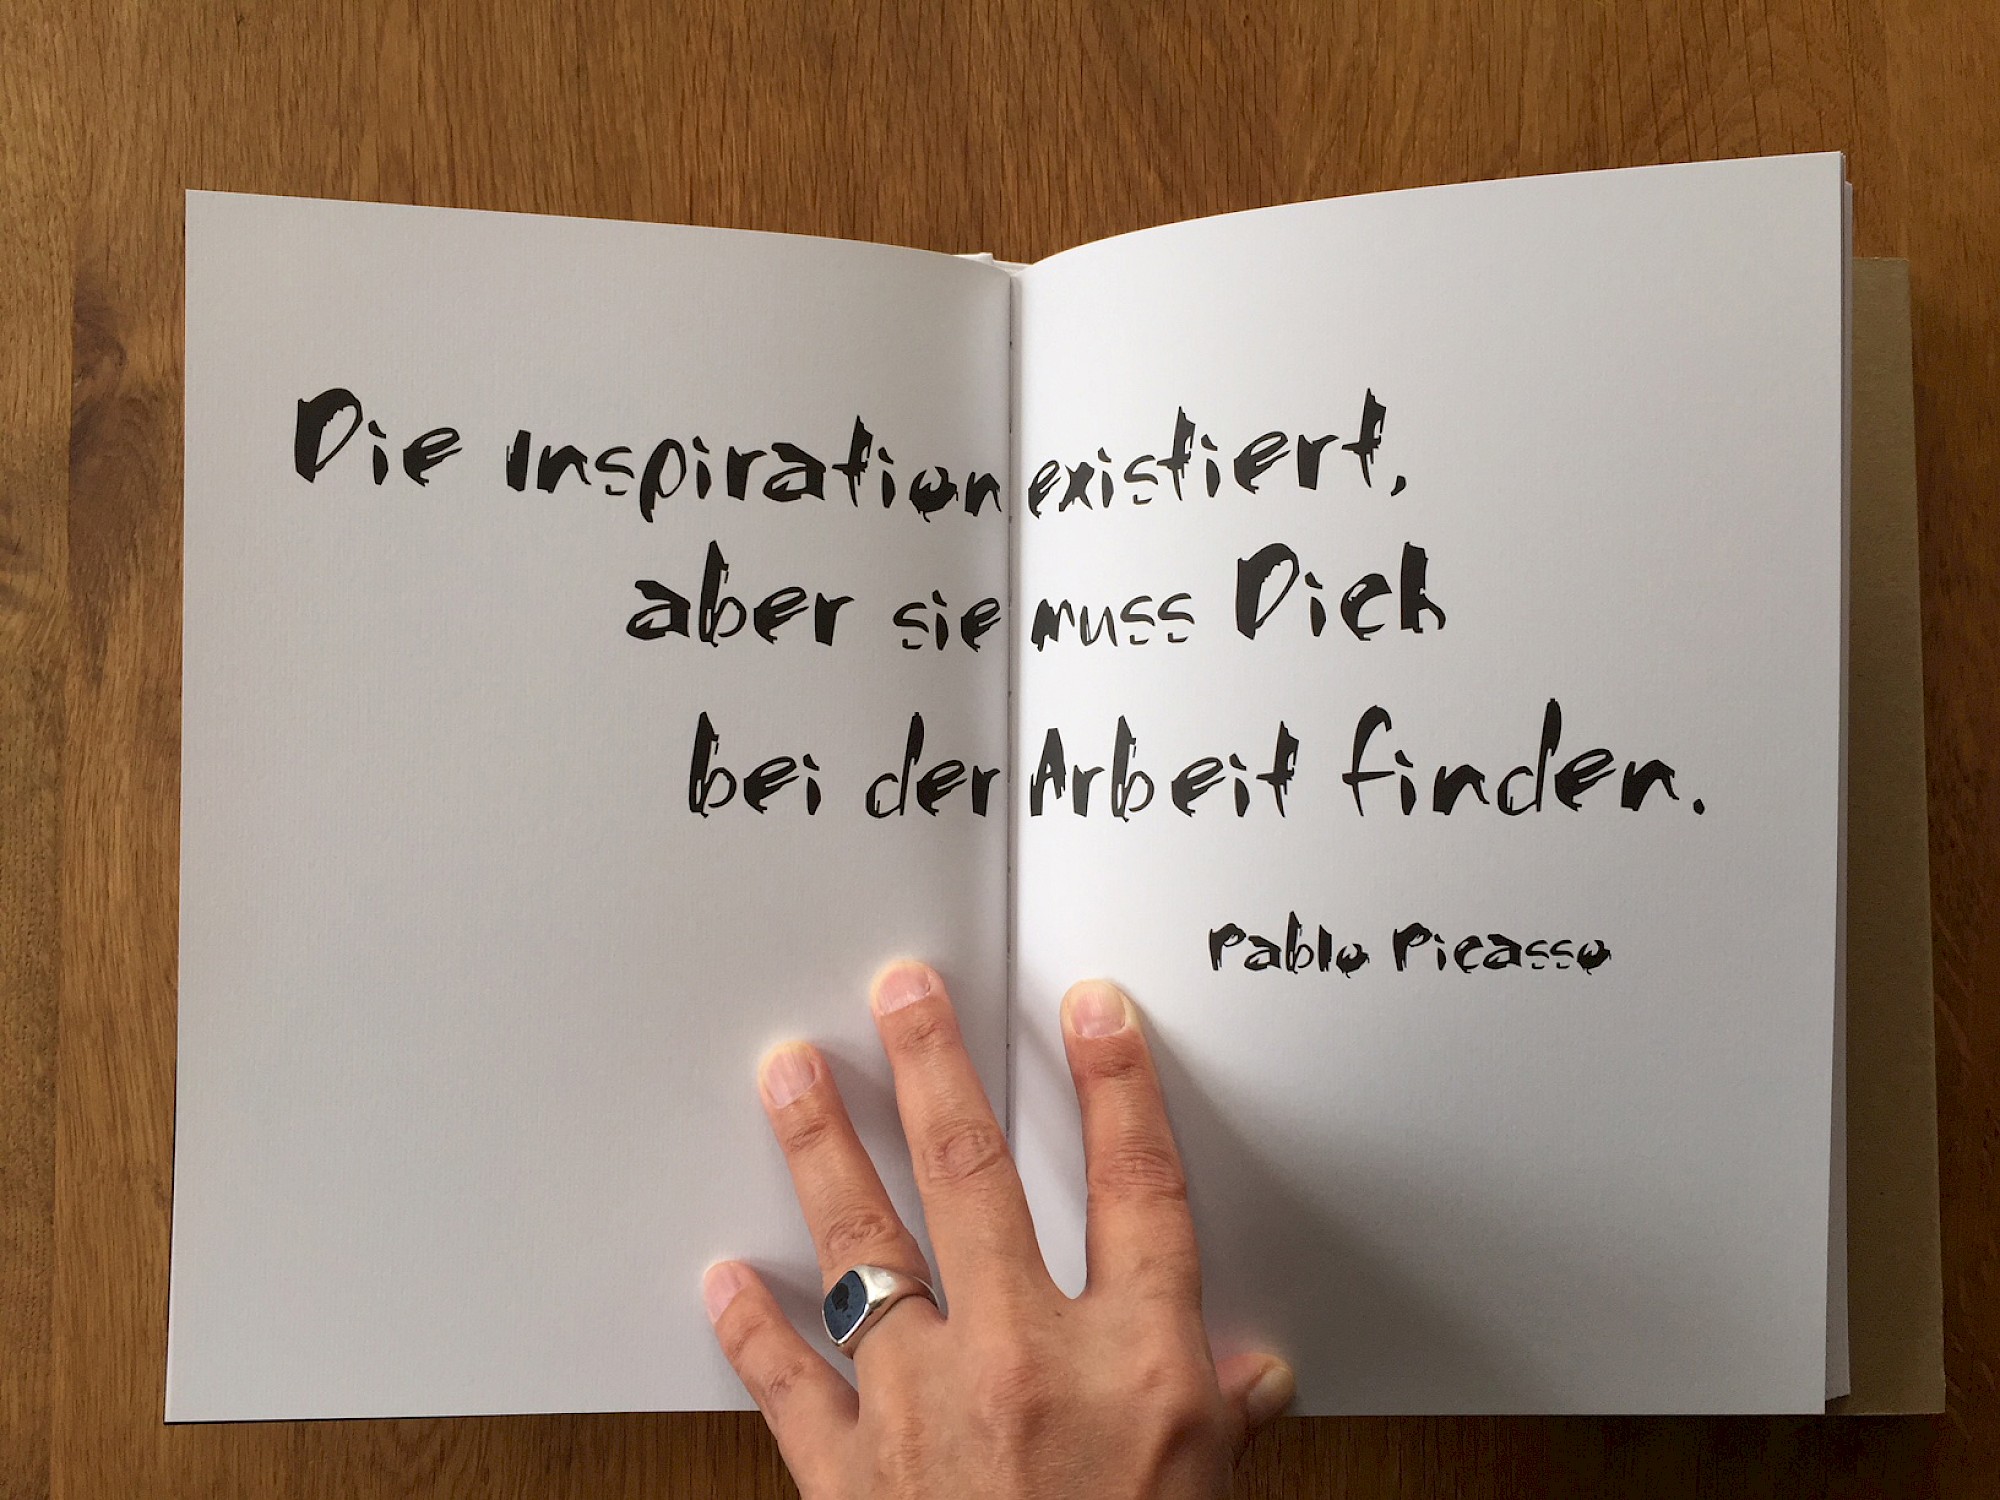 Die Inspiration existiert,
aber sie muss Dich
bei der Arbeit finden.
Pablo Picasso